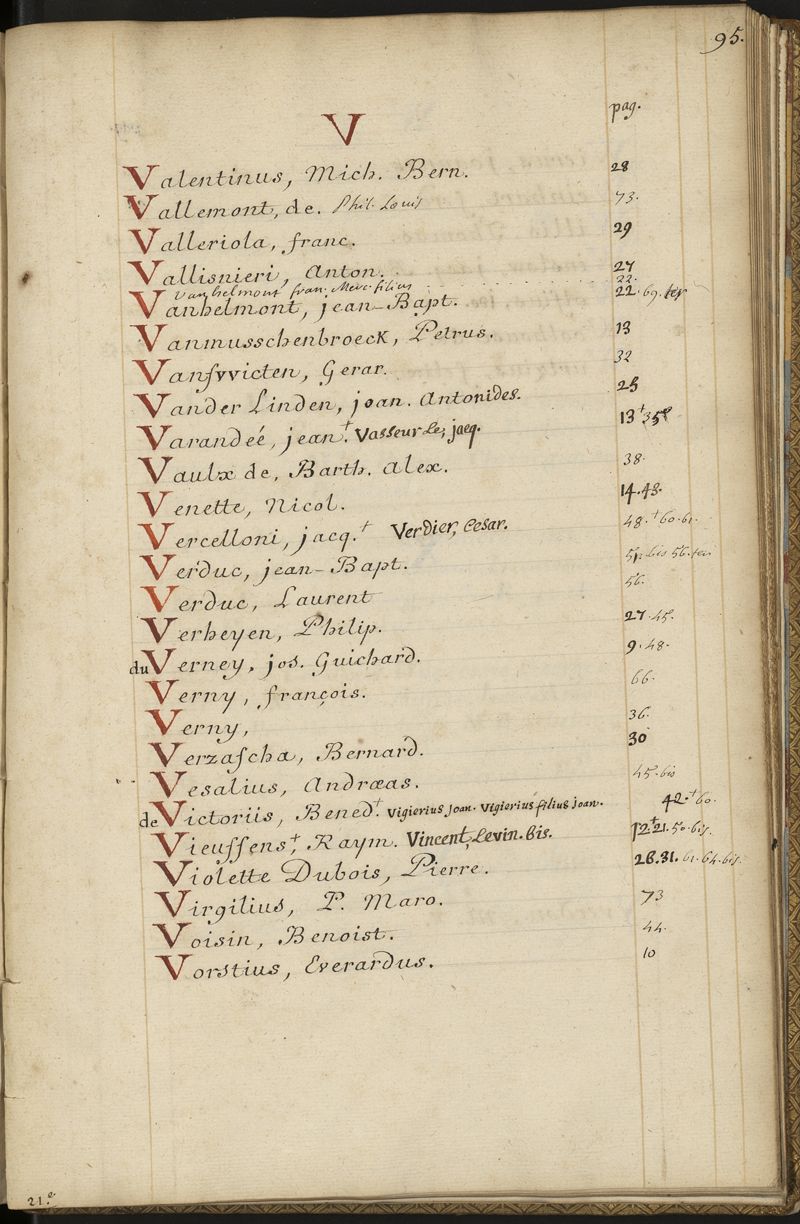 95.
V
pag.
Valentinus, Mich. Bern. 28
Vallemont, de. Phil. Louis 73.
Valleriola, franc. 29
Vallisnieri, Anton. 27
Vanhelmont fran. Merc. filius 22.
Vanhelmont, jean-Bapt. 22. 69. ter
Vanmusschenbroeck, Petrus. 13
Vansvvicten, Gerar. 32
Vander Linden, joan. Antonides. 25
Varandeé, jean.† Vasseur Le, jacq. 13†35
Vaulx de, Barth. Alex. 38.
Venette, Nicol. 14.48.
Vercelloni, jacq.† Verdier, Cesar. 48.†60.61.
Verduc, jean-Bapt. bis 56. ter
Verduc, Laurent 56.
Verheyen, Philip. 27.45.
du Verney, jos. Guichard. 9.48.
Verny, françois. 66.
Verny, 36.
Verzascha, Bernard. 30
Vesalius, Andræas. 45. bis
de Victoriis, Bened.† Vigierius joan. Vigierius filius joan. 42.†60.
Vieussens,† Raym. Vincent, Levin. bis. 12†21.50.bis.
Violette Dubois, Pierre. 26.31.61.64.bis.
Virgilius, P. Maro. 73
Voisin, Benoist. 44.
Vorstius, Everardus. 10
21.e